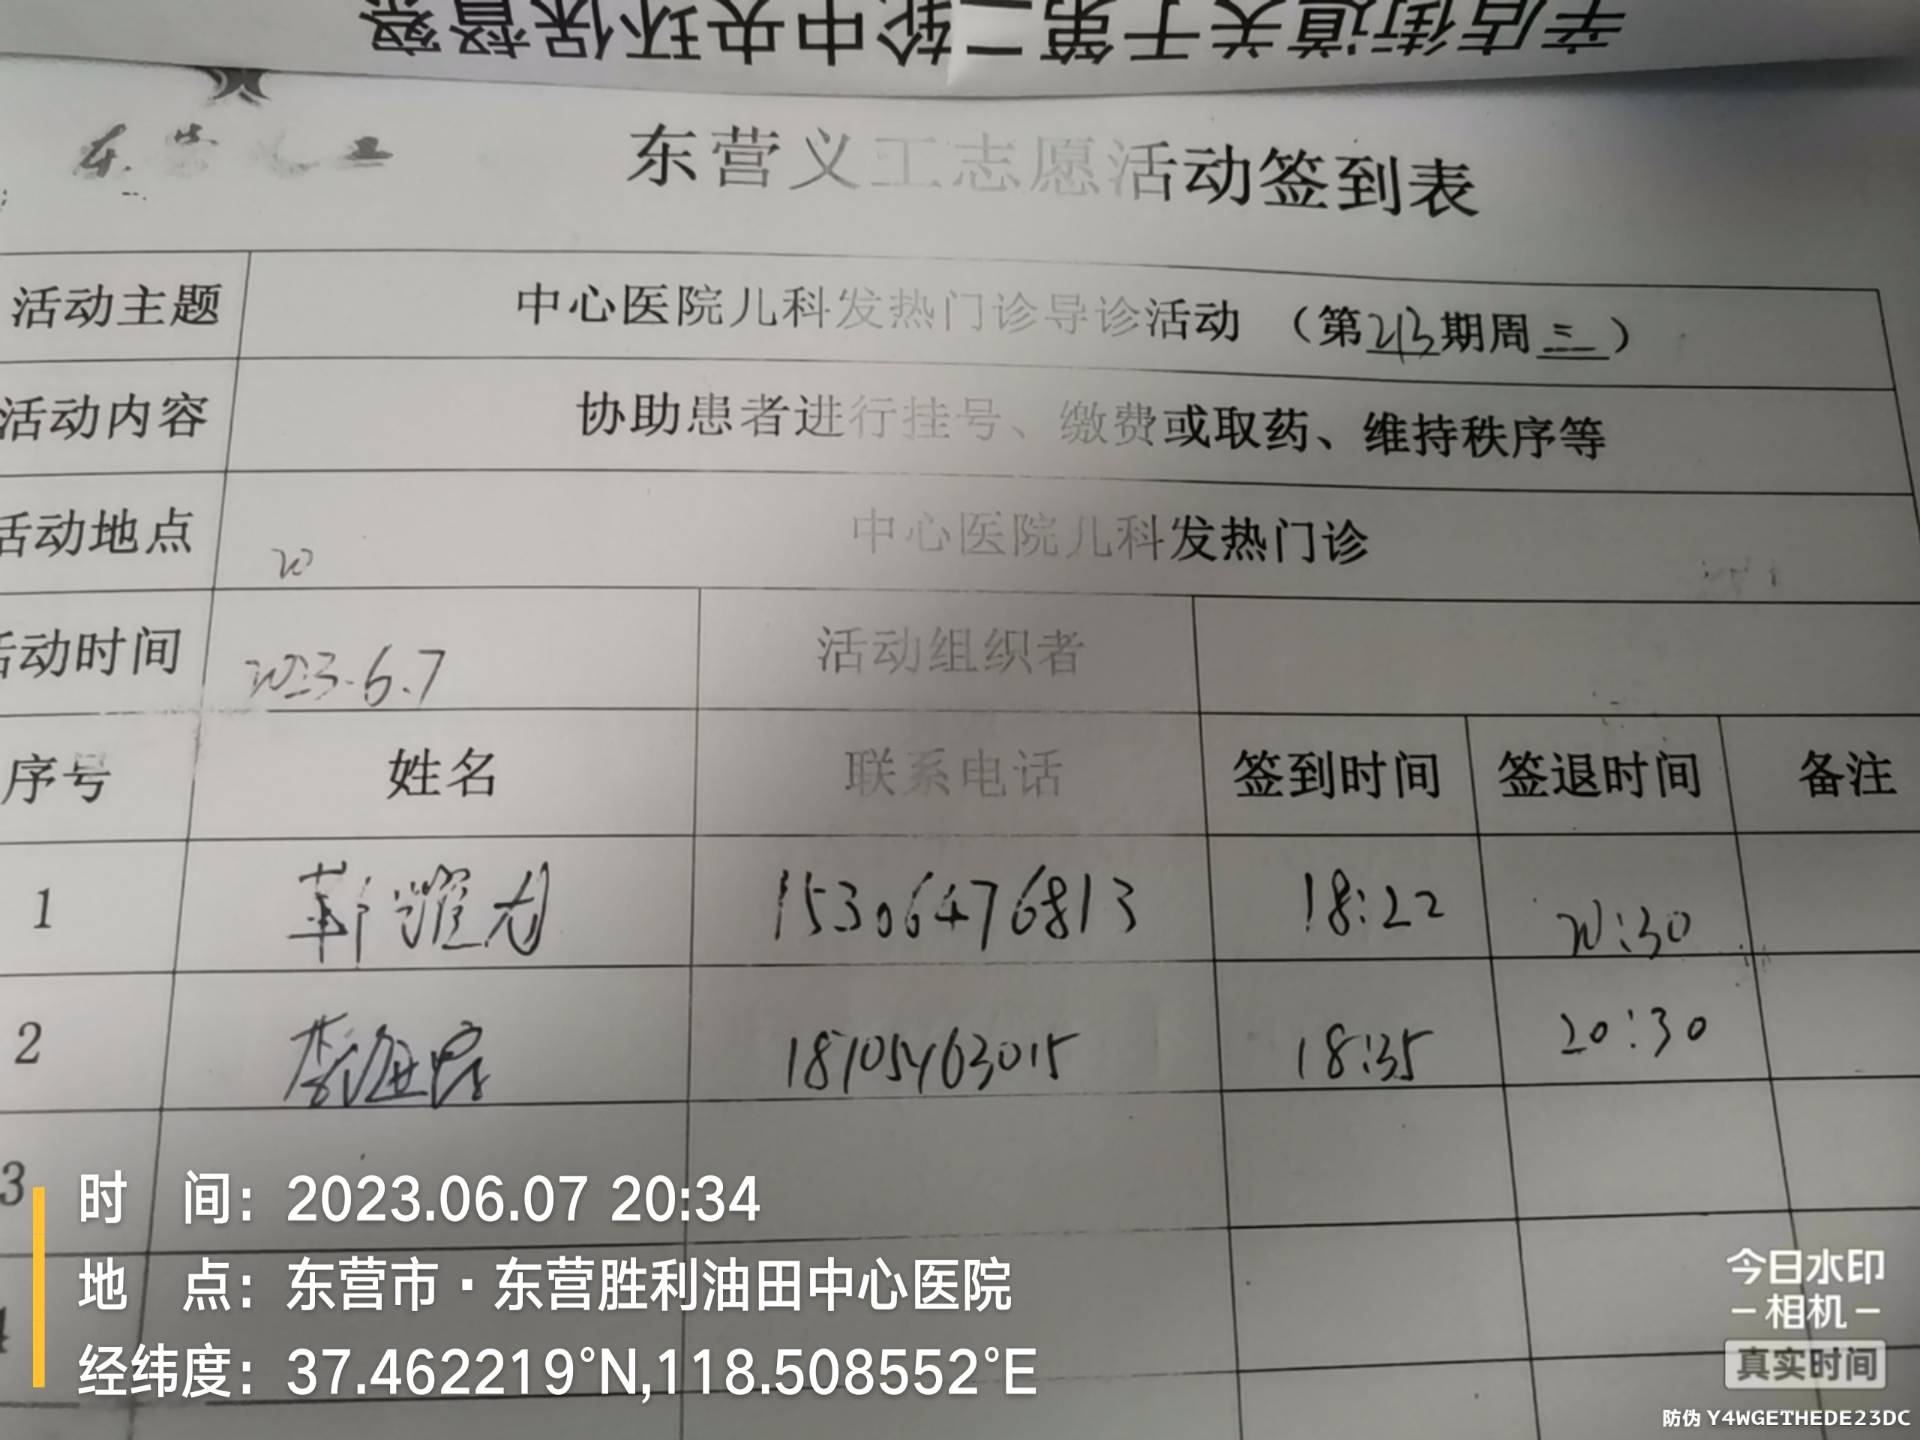 辛店街道关于第二轮中央环保督察
东营义工
东营义工志愿活动签到表
活动主题 中心医院儿科发热门诊导诊活动 （第213期周三）
活动内容 协助患者进行挂号、缴费或取药、维持秩序等
活动地点 中心医院儿科发热门诊
活动时间 2023.6.7 活动组织者
序号 姓名 联系电话 签到时间 签退时间 备注
1 15306476813 18:22 20:30
2 18105463015 18:35 20:30
3
4
时 间：2023.06.07 20:34
地 点：东营市·东营胜利油田中心医院
经纬度：37.462219°N,118.508552°E
今日水印
相机
真实时间
防伪 Y4WGETHEDE23DC